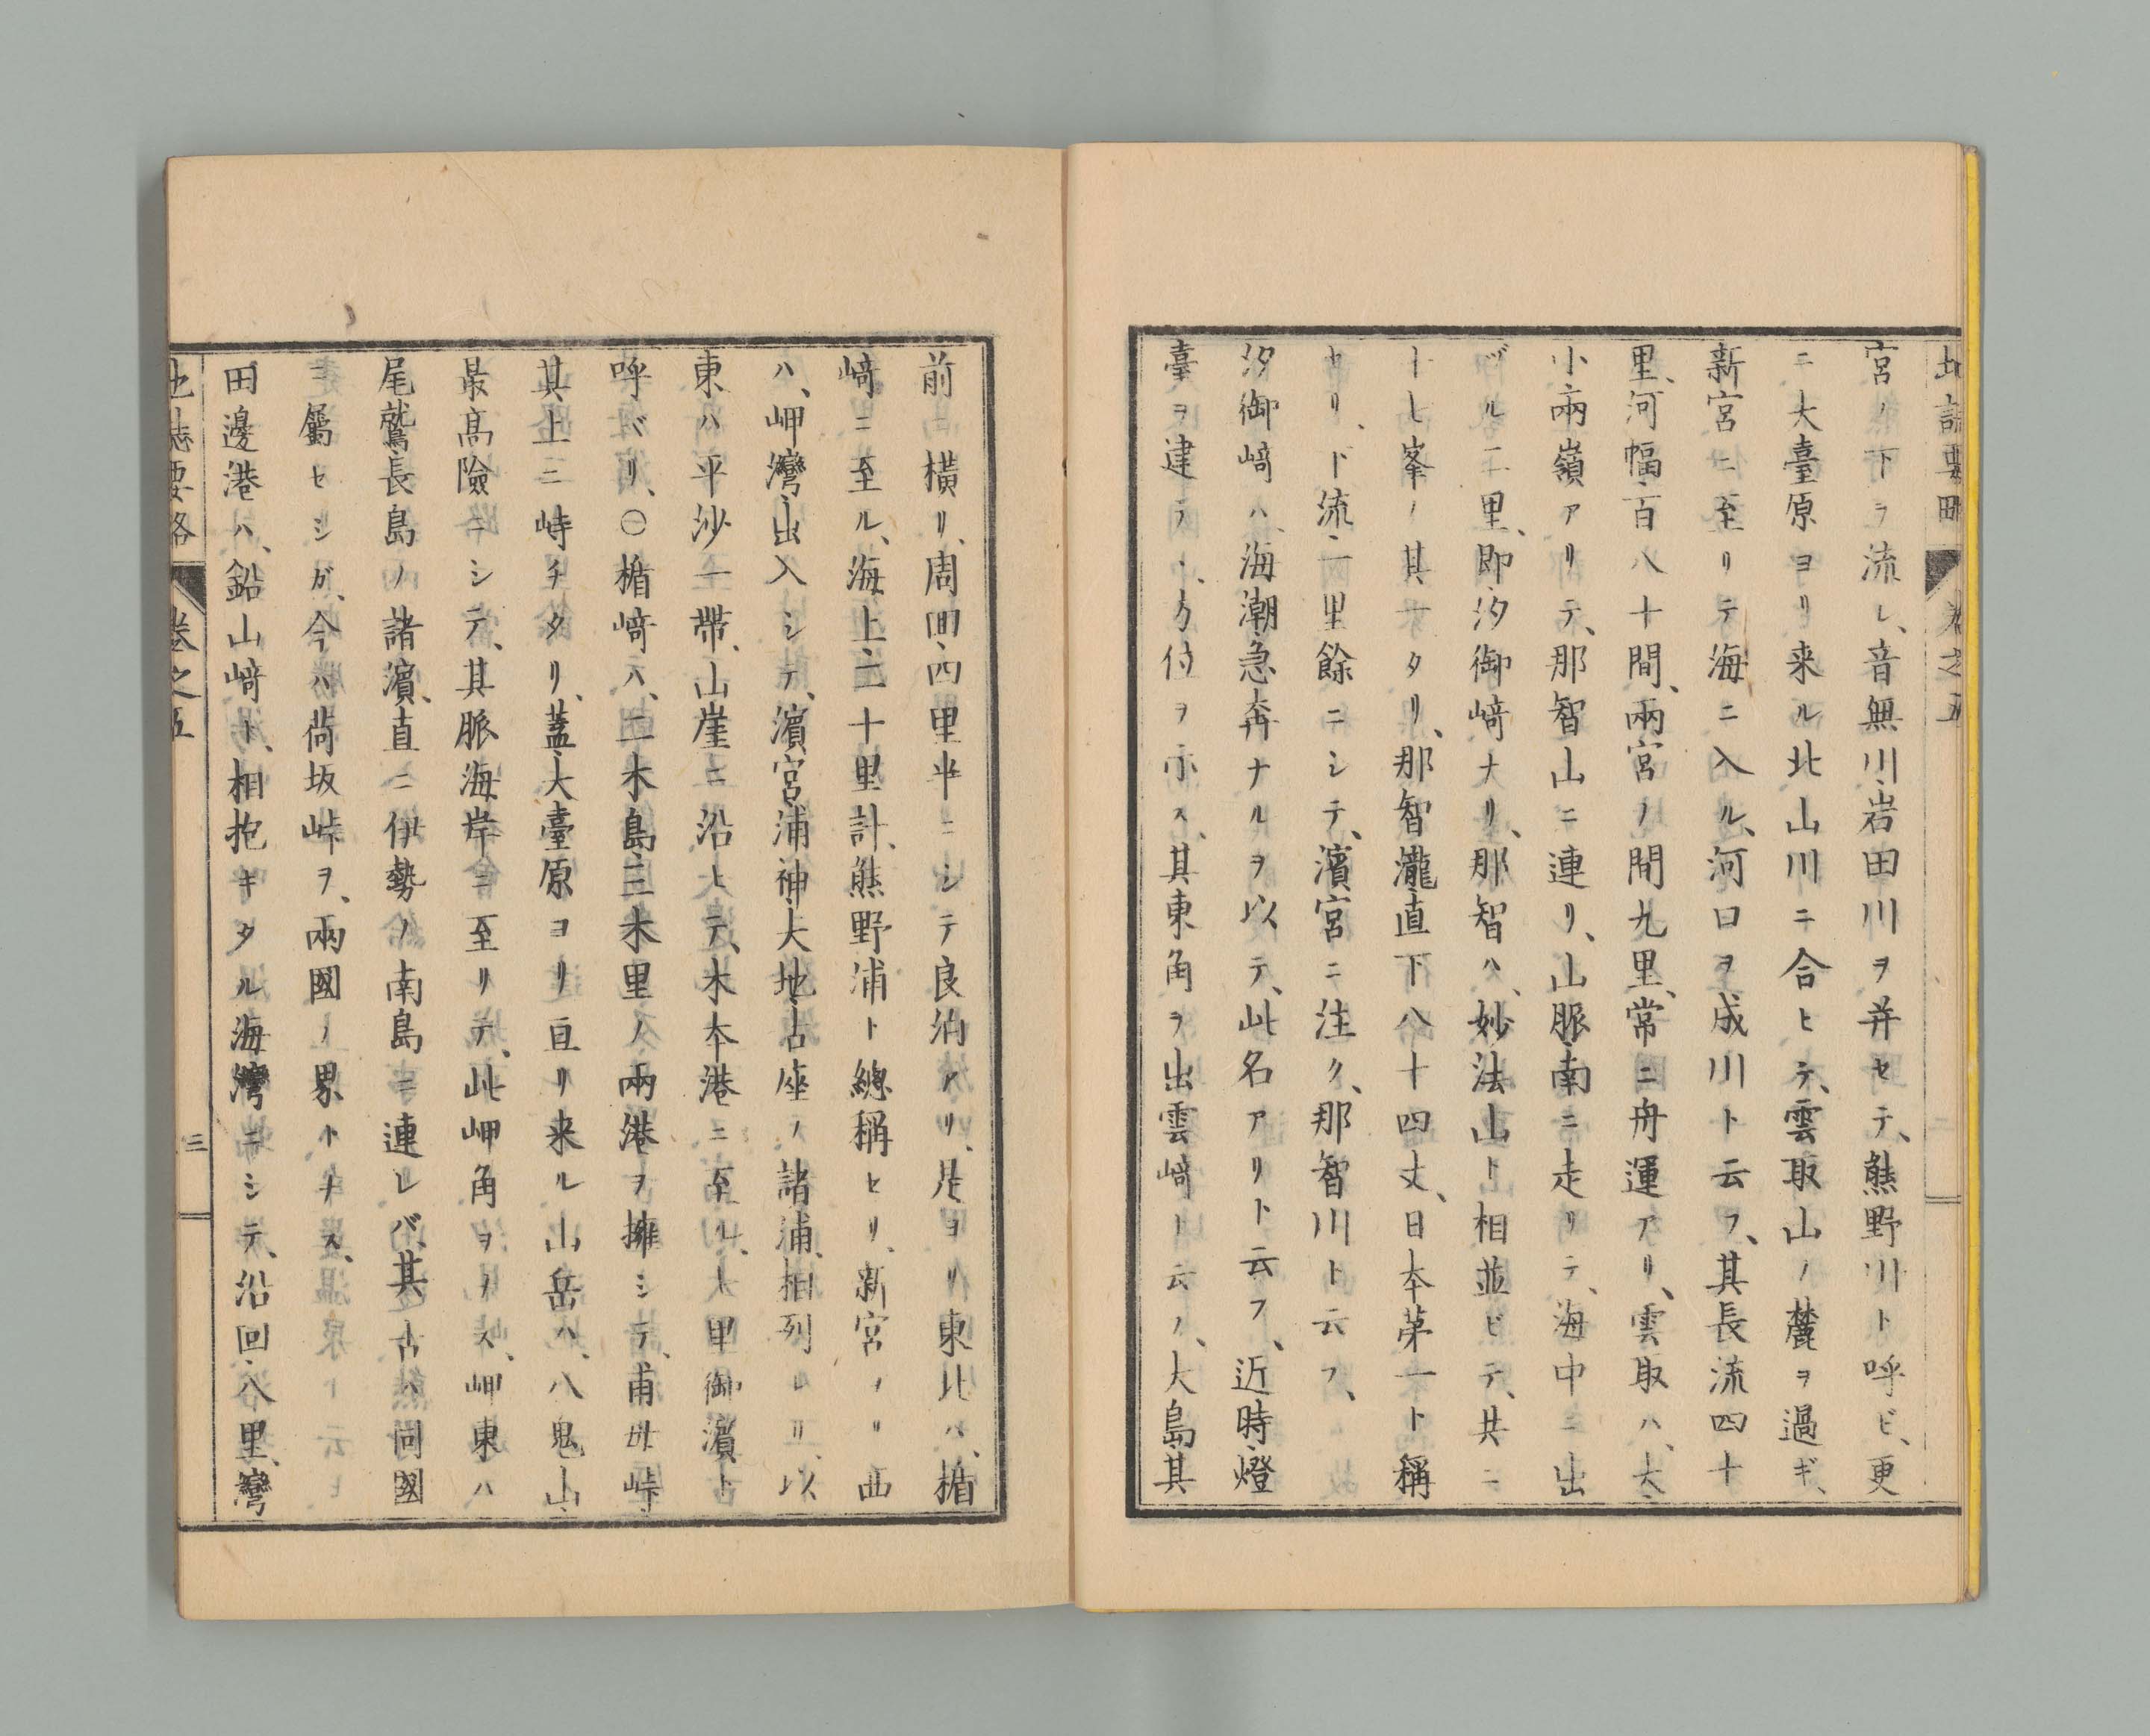 地誌要略 卷之五
宮ノ下ヲ流レ、音無川岩田川ヲ并セテ、熊野川ト呼ビ、更
ニ大臺原ヨリ来ル北山川ニ合ヒテ、雲取山ノ麓ヲ過ギ、
新宮ニ至リテ海ニ入ル、河口ヲ成川ト云フ、其長流四十
里、河幅百八十間、兩宮ノ間九里、常ニ舟運アリ、雲取ハ、大
小兩嶺アリテ、那智山ニ連リ、山脈南ニ走リテ、海中ニ出
ヅル二里、即汐御﨑ナリ、那智ハ、妙法山ト相並ビテ、共ニ
峯ノ其一タリ、那智瀧直下八十四丈、日本第一ト稱
セリ、下流二里餘ニシテ、濱宮ニ注ク、那智川ト云フ、
汐御﨑ハ、海潮急奔ナルヲ以テ、此名アリト云フ、近時燈
臺ヲ建テ、方位ヲ示ス、其東角ヲ出雲﨑ト云フ、大島其
前ニ横リ、周回四里半ニシテ良泊アリ、是ヨリ東北ハ、楯
﨑ニ至ル、海上二十里計、熊野浦ト總稱セリ、新宮ヨリ西
ハ、岬灣出入シテ、濱宮浦神太地古座ノ諸浦、相列レリ、以
東ハ平沙一帶、山崖ニ沿ヒテ、木本港ニ至ル、七里御濱ト
呼ベリ、〇楯﨑ハ、二木島三木里ノ兩港ヲ擁シテ、甫母峠
其上ニ峙チタリ、蓋大臺原ヨリ亘リ来ル山岳ハ、八鬼山
最高險ニシテ、其脈海岸ニ至リテ、此岬角ヲナス、岬東ハ
尾鷲長島ノ諸濱、直ニ伊勢ノ南島ニ連レバ、其古ハ同國
ニ屬セシガ、今ハ荷坂峠ヲ、兩國ノ界トナス、
田邊港ハ、鉛山﨑ト、相抱キタル海灣ニシテ、沿回八里、灣
地誌要略 卷之五 三